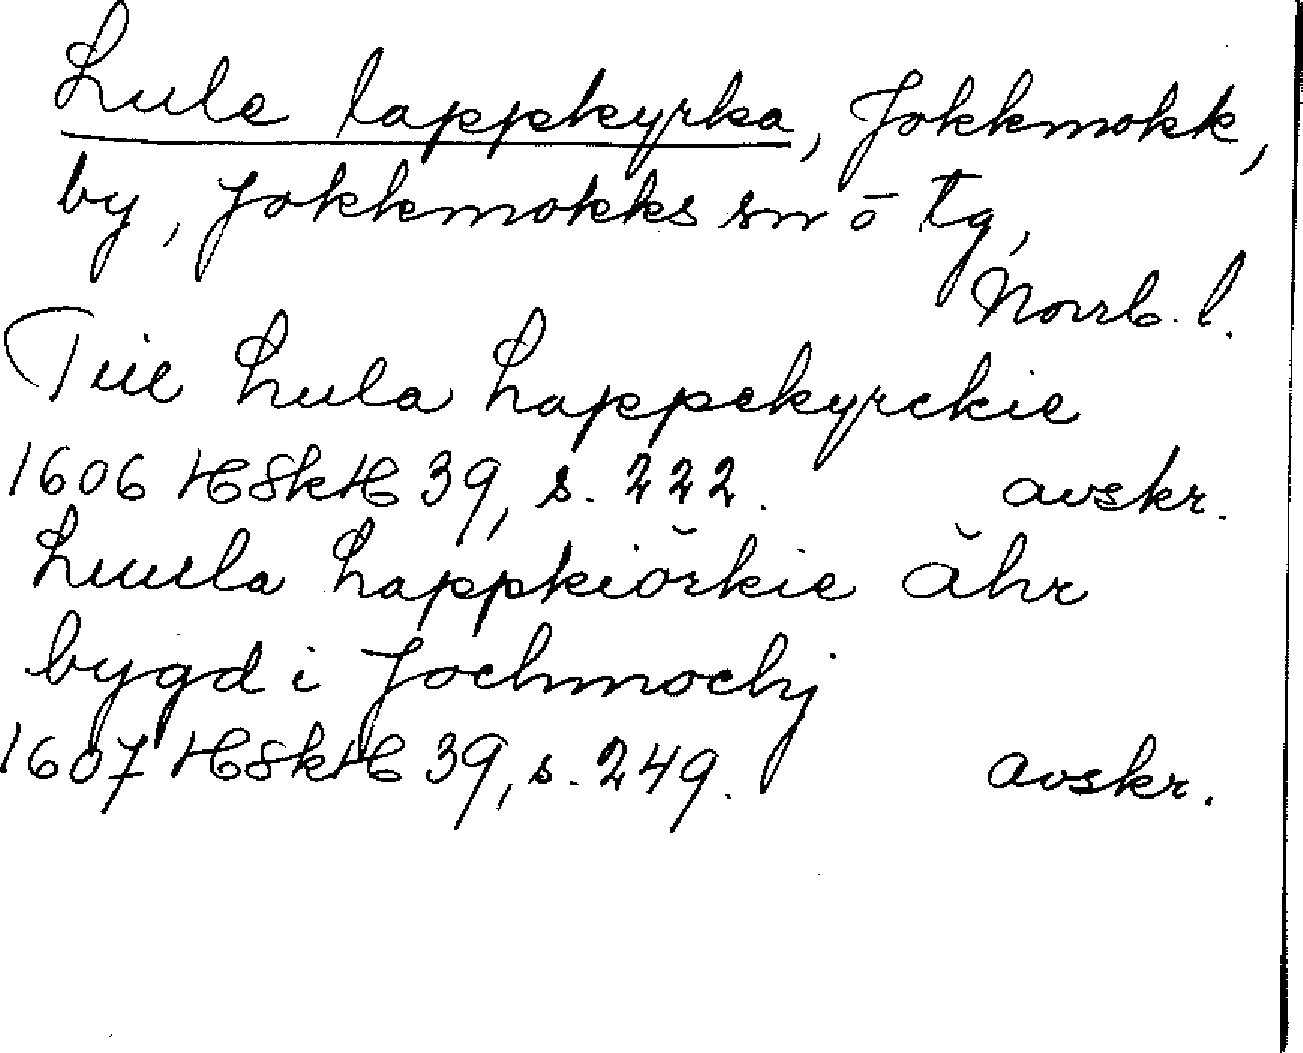 Lule lappkyrka, Jokkmokk,
by, Jokkmokks sn o tg,
Norrb. l.
Tiil Lula Lappekyrckie
1606 HSkH 39, s. 222. avskr.
Luula Lappkiörkie ähr
bygd i Jochmochj
1607 HSkH 39, s. 249. avskr.